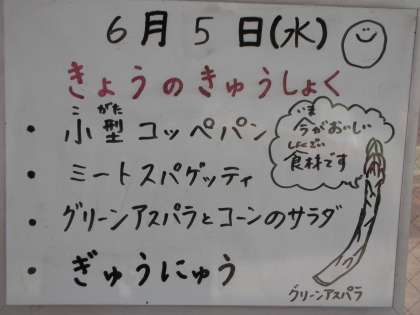 6月5日(水)
きょうのきゅうしょく
こ がた
・小型コッペパン
・ミートスパゲッティ
・グリーンアスパラとコーンのサラダ
・ぎゅうにゅう
いま
今がおいしい
しょくざい
食材です
グリーンアスパラ